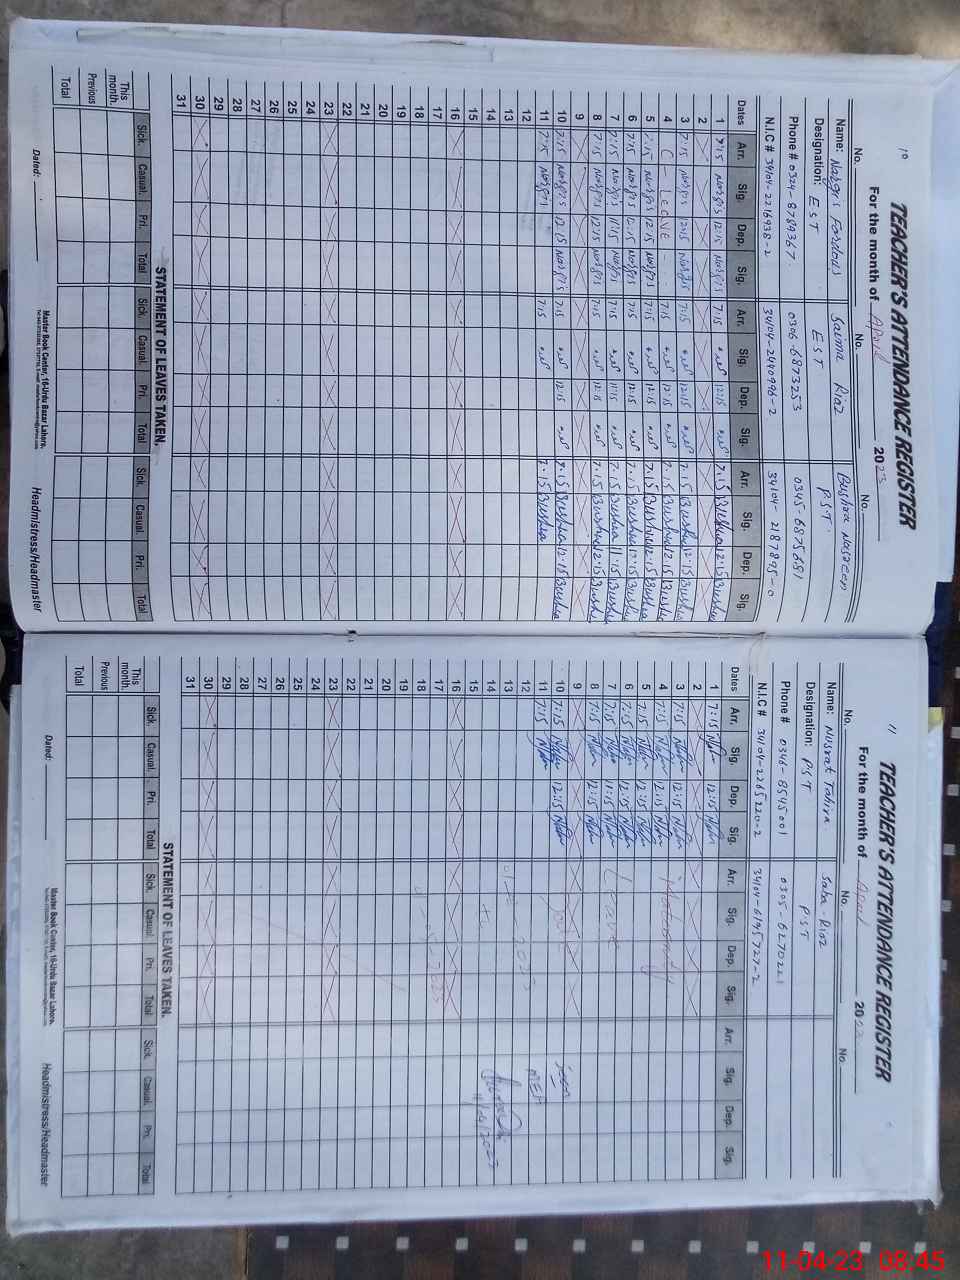 10
TEACHER'S ATTENDANCE REGISTER
For the month of April 2023
No. No. No.
Name: Nargis Fardous Salma Riaz Bushra Nasreen
Designation: EST EST PST
Phone # 0324-8789367 0306-6873253 0345-6875681
N.I.C # 34104-2216938-2 34104-2440996-2 34104-2187895-0
Dates Arr. Sig. Dep. Sig. Arr. Sig. Dep. Sig. Arr. Sig. Dep. Sig.
1 7:15 Nargis 12:15 Nargis 7:15 12:15 7:15 Bushra 12:15 Bushra
2
3 7:15 Nargis 12:15 Nargis 7:15 12:15 7:15 Bushra 12:15 Bushra
4 C - Leave - - 7:15 12:15 7:15 Bushra 12:15 Bushra
5 7:15 Nargis 12:15 Nargis 7:15 12:15 7:15 Bushra 12:15 Bushra
6 7:15 Nargis 12:15 Nargis 7:15 12:15 7:15 Bushra 12:15 Bushra
7 7:15 Nargis 11:15 Nargis 7:15 11:15 7:15 Bushra 11:15 Bushra
8 7:15 Nargis 12:15 Nargis 7:15 12:15 7:15 Bushra 12:15 Bushra
9
10 7:15 Nargis 12:15 Nargis 7:15 12:15 7:15 Bushra 12:15 Bushra
11 7:15 Nargis 7:15 7:15 Bushra
12
13
14
15
16
17
18
19
20
21
22
23
24
25
26
27
28
29
30
31
STATEMENT OF LEAVES TAKEN.
Sick. Casual. Pri. Total Sick. Casual. Pri. Total Sick. Casual. Pri. Total
This month.
Previous
Total
Dated:
Master Book Center, 16-Urdu Bazar Lahore.
Headmistress/Headmaster
11
TEACHER'S ATTENDANCE REGISTER
For the month of April 2023
No. No. No.
Name: Nusrat Tahira Saba Riaz
Designation: PST PST
Phone # 0346-8545001 0305-6270221
N.I.C # 34104-2265220-2 34104-6195727-2
Dates Arr. Sig. Dep. Sig. Arr. Sig. Dep. Sig. Arr. Sig. Dep. Sig.
1 7:15 12:15
2
3 7:15 12:15
4 7:15 12:15 Maternity
5 7:15 12:15
6 7:15 12:15
7 7:15 11:15 Leave
8 7:15 12:15
9
10 7:15 12:15 seen
11 7:15
12 AEO
13
14 11/04/2023
15
16
17
18
19
20
21
22
23
24
25
26
27
28
29
30
31
STATEMENT OF LEAVES TAKEN.
Sick. Casual. Pri. Total Sick. Casual. Pri. Total Sick. Casual. Pri. Total
This month.
Previous
Total
Dated:
Master Book Center, 16-Urdu Bazar Lahore.
Headmistress/Headmaster
11-04-23 08:45